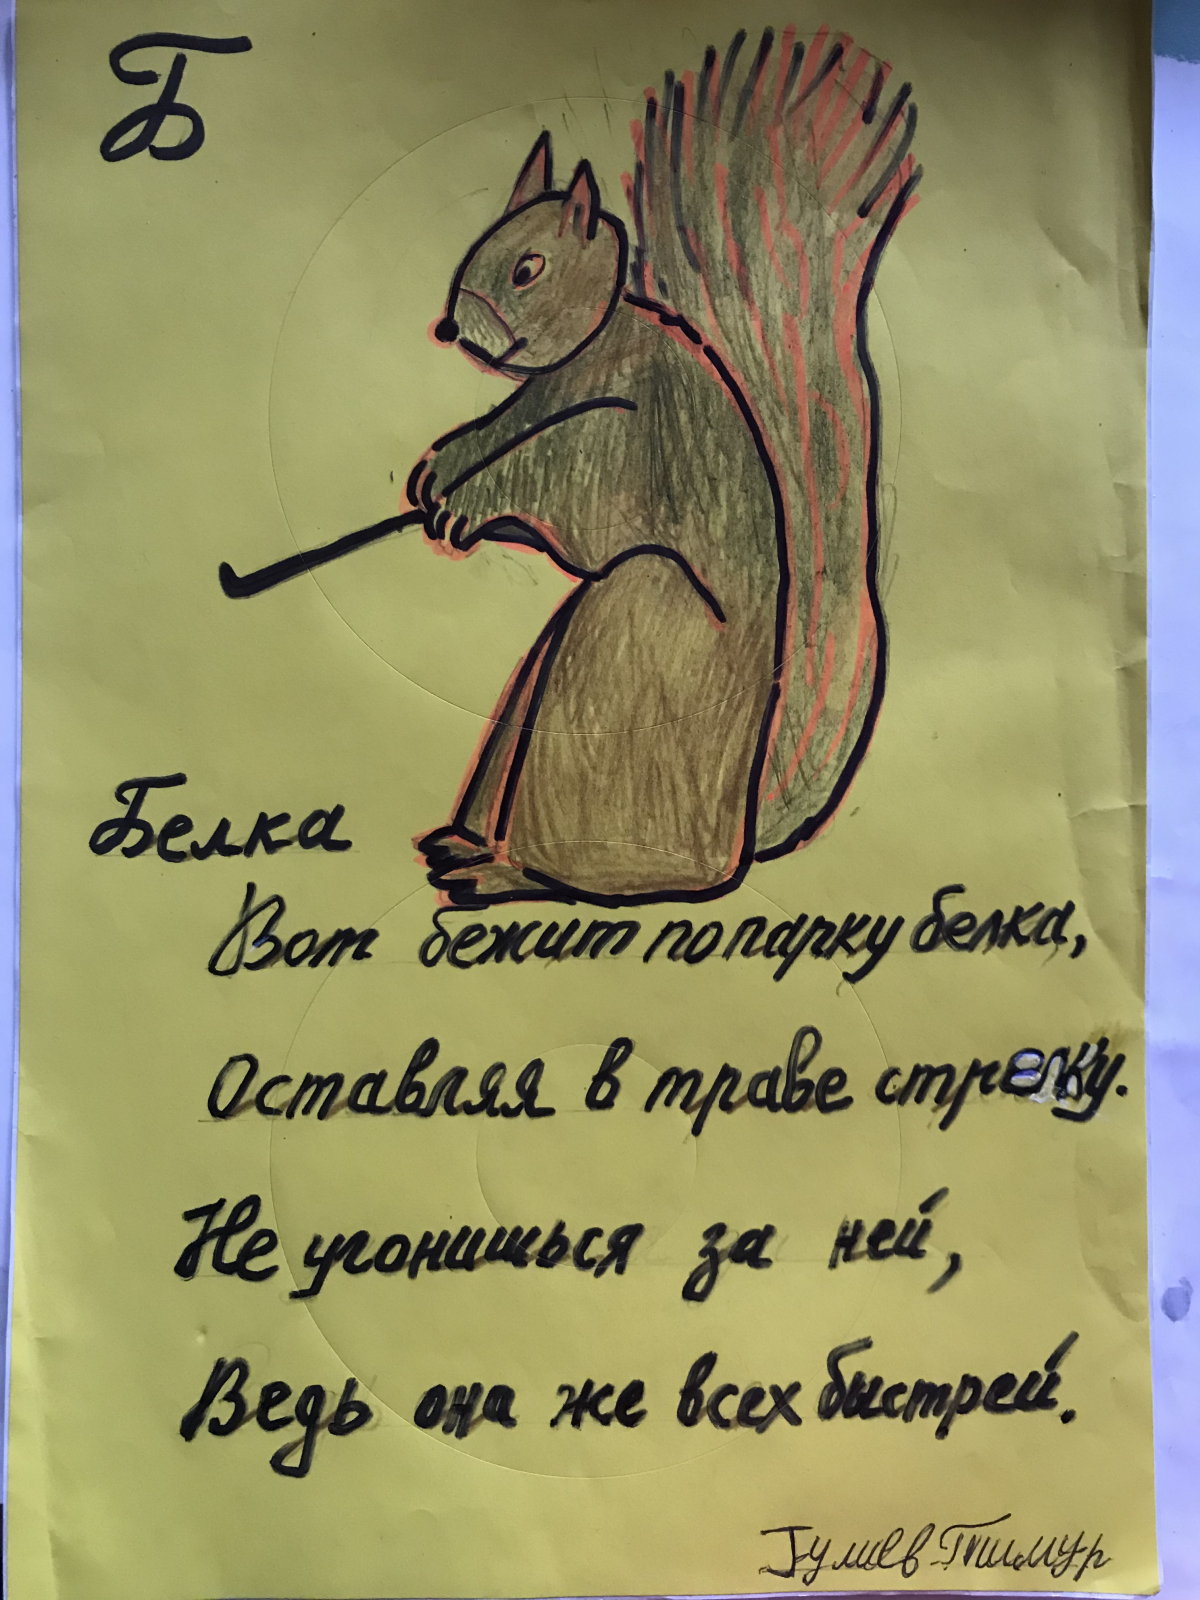 Б
Белка
Вот бежит по парку белка,
Оставляя в траве стрелку.
Не угонишься за ней,
Ведь она же всех быстрей.
Гулиев Тимур